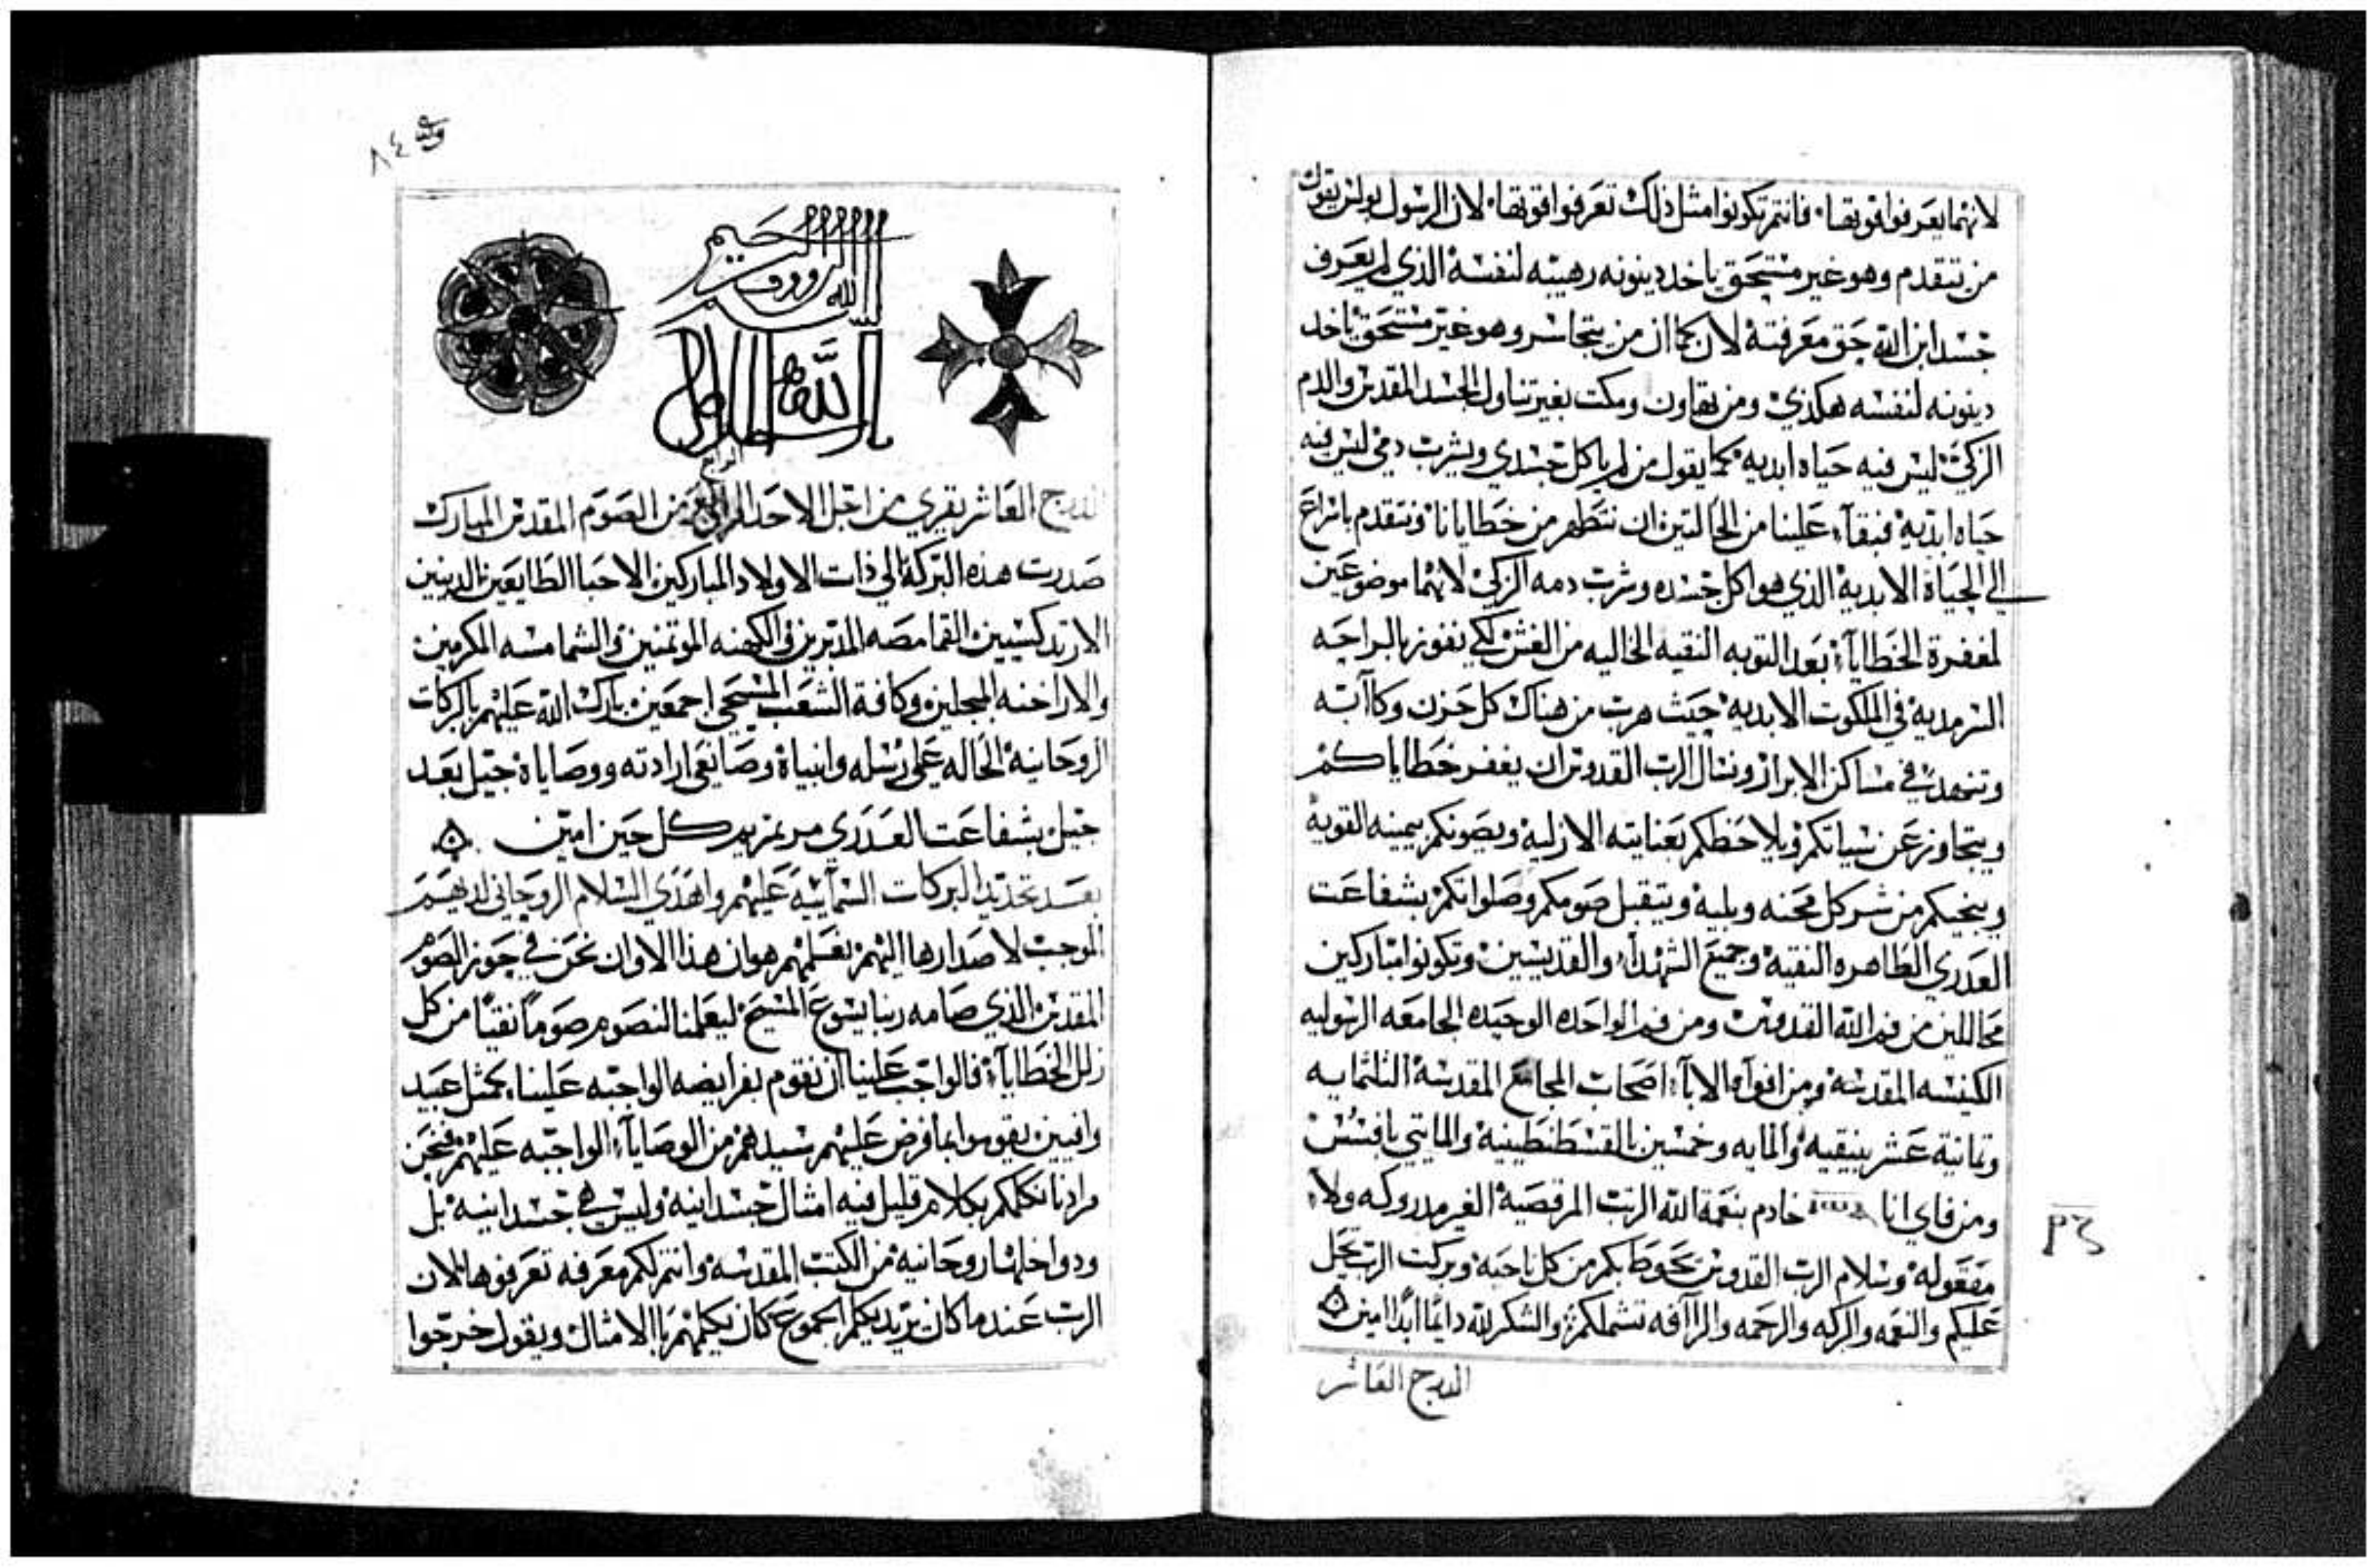 لانهما يعرفوا قوتها فانتم تكونوا مثل ذلك تعرفوا قوتها لان الرسول بولس يقول
من تتقدم وهو غير مستحق ياخد دينونه رهيبه لنفسه الذي لم يعرف
جسد ابن الله حق معرفته لان كما ان من يتجاسر وهو غير مستحق ياخد
دينونه لنفسه هكذي ومن تهاون ومكت بغير تناول الجسد المقدس والدم
الزكي ليس فيه حياه ابديه كما يقول من لم ياكل جسدي ويشرب دمي ليس فيه
حياه ابديه فبقاء علينا من الحالتين ان نتطهر من خطايانا ونتقدم باسراع
الي الحياة الابدية الذي هو اكل جسده وشرب دمه الزكي لانهما موضوعين
لمغفرة الخطايا بعد التوبه النقيه الخاليه من الغش لكي نفوز بالراحه
السرمديه في الملكوت الابديه حيث هرب من هناك كل حزن وكاابه
وتنهد في مساكن الابرار ونسال الرب القدوس ان يغفر خطاياكم
ويتجاوز عن سياتكم ويلاحظكم بعنايته الازليه ويصونكم بيمينه القوية
وينجيكم من شر كل محنه وبليه ويتقبل صومكم وصلواتكم بشفاعت
العدري الطاهره النقيه وجميع الشهداء والقديسين وتكونوا مباركين
محاللين من فم الله القدوس ومن فم الواحده الوحيده الجامعه الرسوليه
الكنيسه المقدسه ومن افواه الاباء اصحاب المجامع المقدسة التلتمايه
وتمانية عشر بنيقيه والمايه وخمسين بالقسطنطينيه والمايتي بافسس
ومن فاي انا خادم بنعمة الله الرتب المرقصية الغير مدروكه ولا
مفعوله وسلام الرب القدوس يحوط بكم من كل ناحية وبركت الرب تحل
عليكم والنعمه والبركه والرحمه والراافه تشملكم والشكر لله دايما ابدا امين
الدرج العاشر
٨٤
بسم الله الروووف الرحيم
الدرج العاشر يقري من اجل الاحد الرابع من الصوم المقدس المبارك
صدرت هذه البركة الي ذات الاولاد المباركين الاحبا الطايعين الدينين
الارتدكسيين القمامصه المدبرين والكهنه الموتمنين والشمامسه المكرمين
والاراخنه المبجلين وكافة الشعب المسيحي اجمعين بارك الله عليهم بالبركات
الروحانية الحاله علي رسله وانبياة وصانعي ارادته ووصاياة جيل بعد
جيل بشفاعت العدري مرتمريم كل حين امين
بعد تجديد البركات السمايية عليهم واهدي السلام الروحاني لديهم
الموجب لاصدارها اليهم نعلمهم هو ان هذا الاوان نحن في حوز الصوم
المقدس الذي صامه ربنا يسوع المسيح ليعلمنا لنصوم صوما نقيا من كل
زلل الخطايا فالواجب علينا ان نقوم بفرايضه الواجبه علينا كمثل عبيد
وافيين يقوموا بما فرض عليهم سيدهم من الوصايا الواجبه عليهم فنحن
مرادنا نكلمكم بكلام قليل فيه امثال جسدانيه وليس هي جسدانيه بل
ودواخلها روحانيه من الكتب المقدسه وانتم لكم معرفه تعرفوها لان
الرب عند ما كان يريد يكلم الجموع كان يكلمهم باالامثال ويقول خرجوا